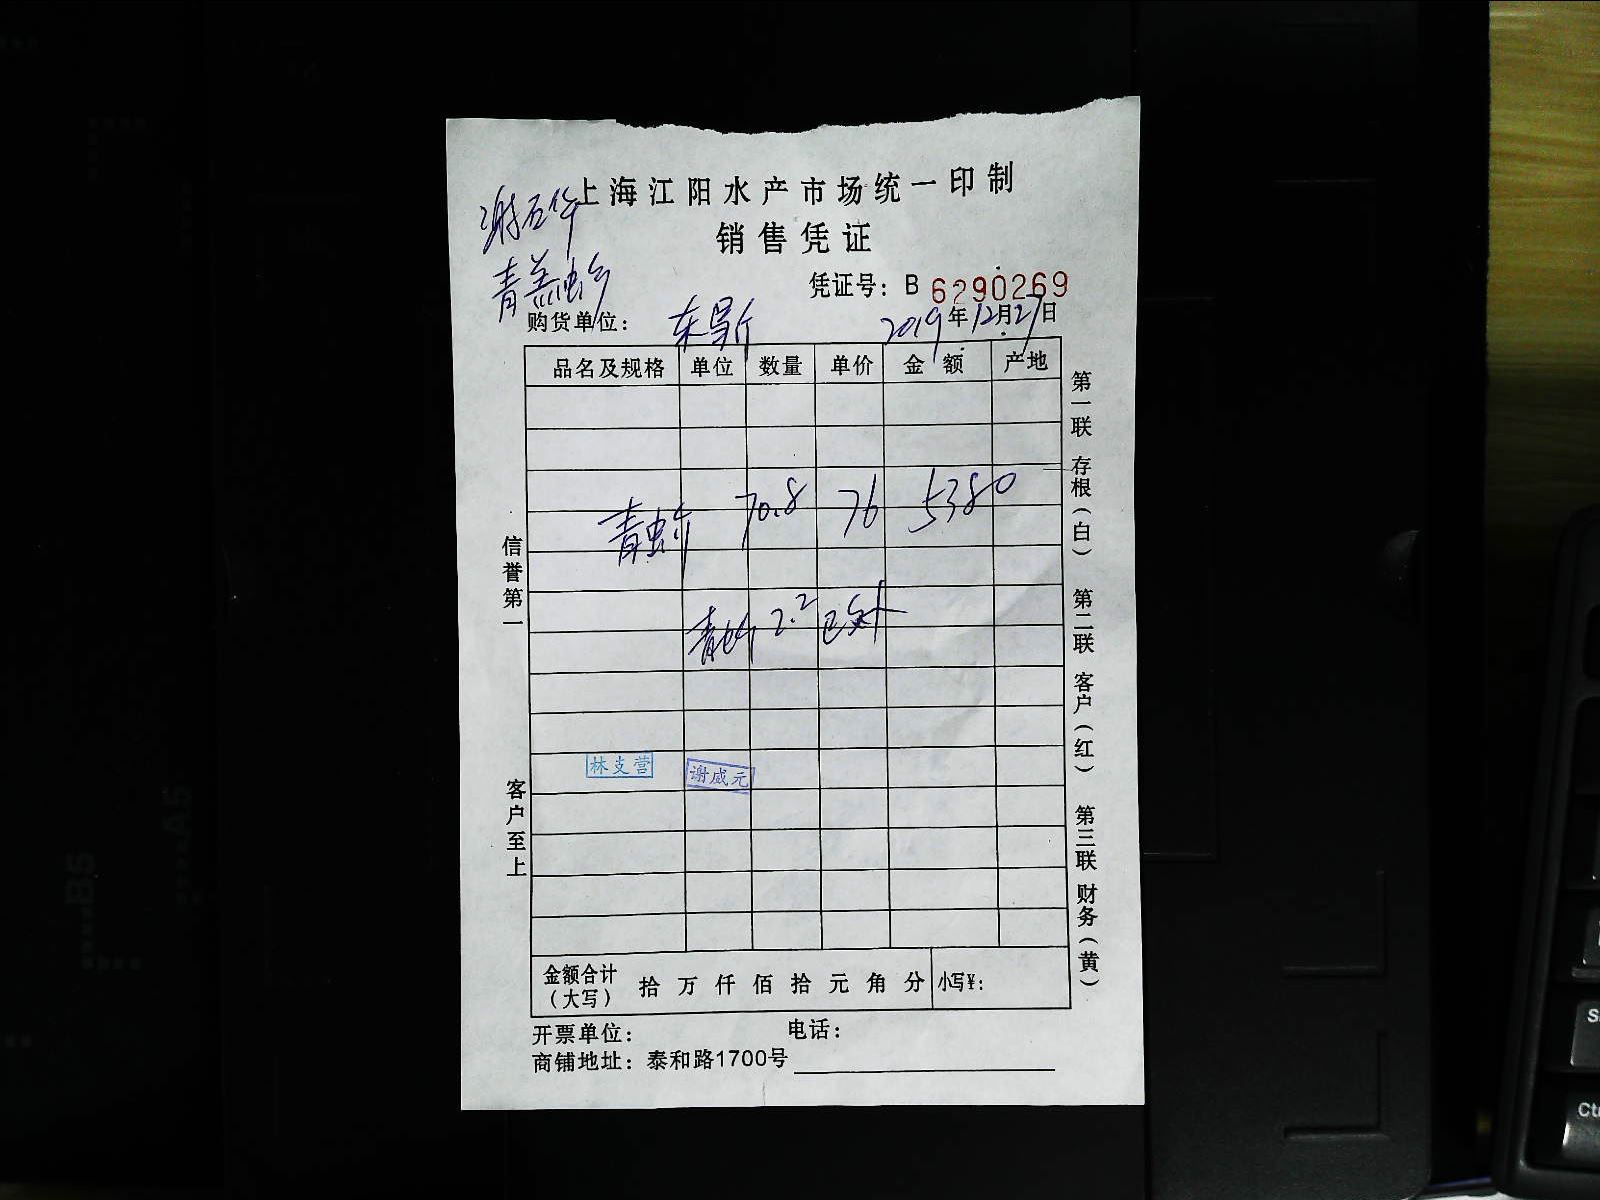 上海江阳水产市场统一印制
销售凭证
凭证号：B 6290269
购货单位：
2019年12月27日
品名及规格 单位 数量 单价 金额 产地
青虫 70.8 76 5380
2.2
林支营 谢成元
金额合计（大写） 拾 万 仟 佰 拾 元 角 分 小写¥：
开票单位： 电话：
商铺地址：泰和路1700号
信誉第一 客户至上
第一联 存根（白） 第二联 客户（红） 第三联 财务（黄）
S
Ct